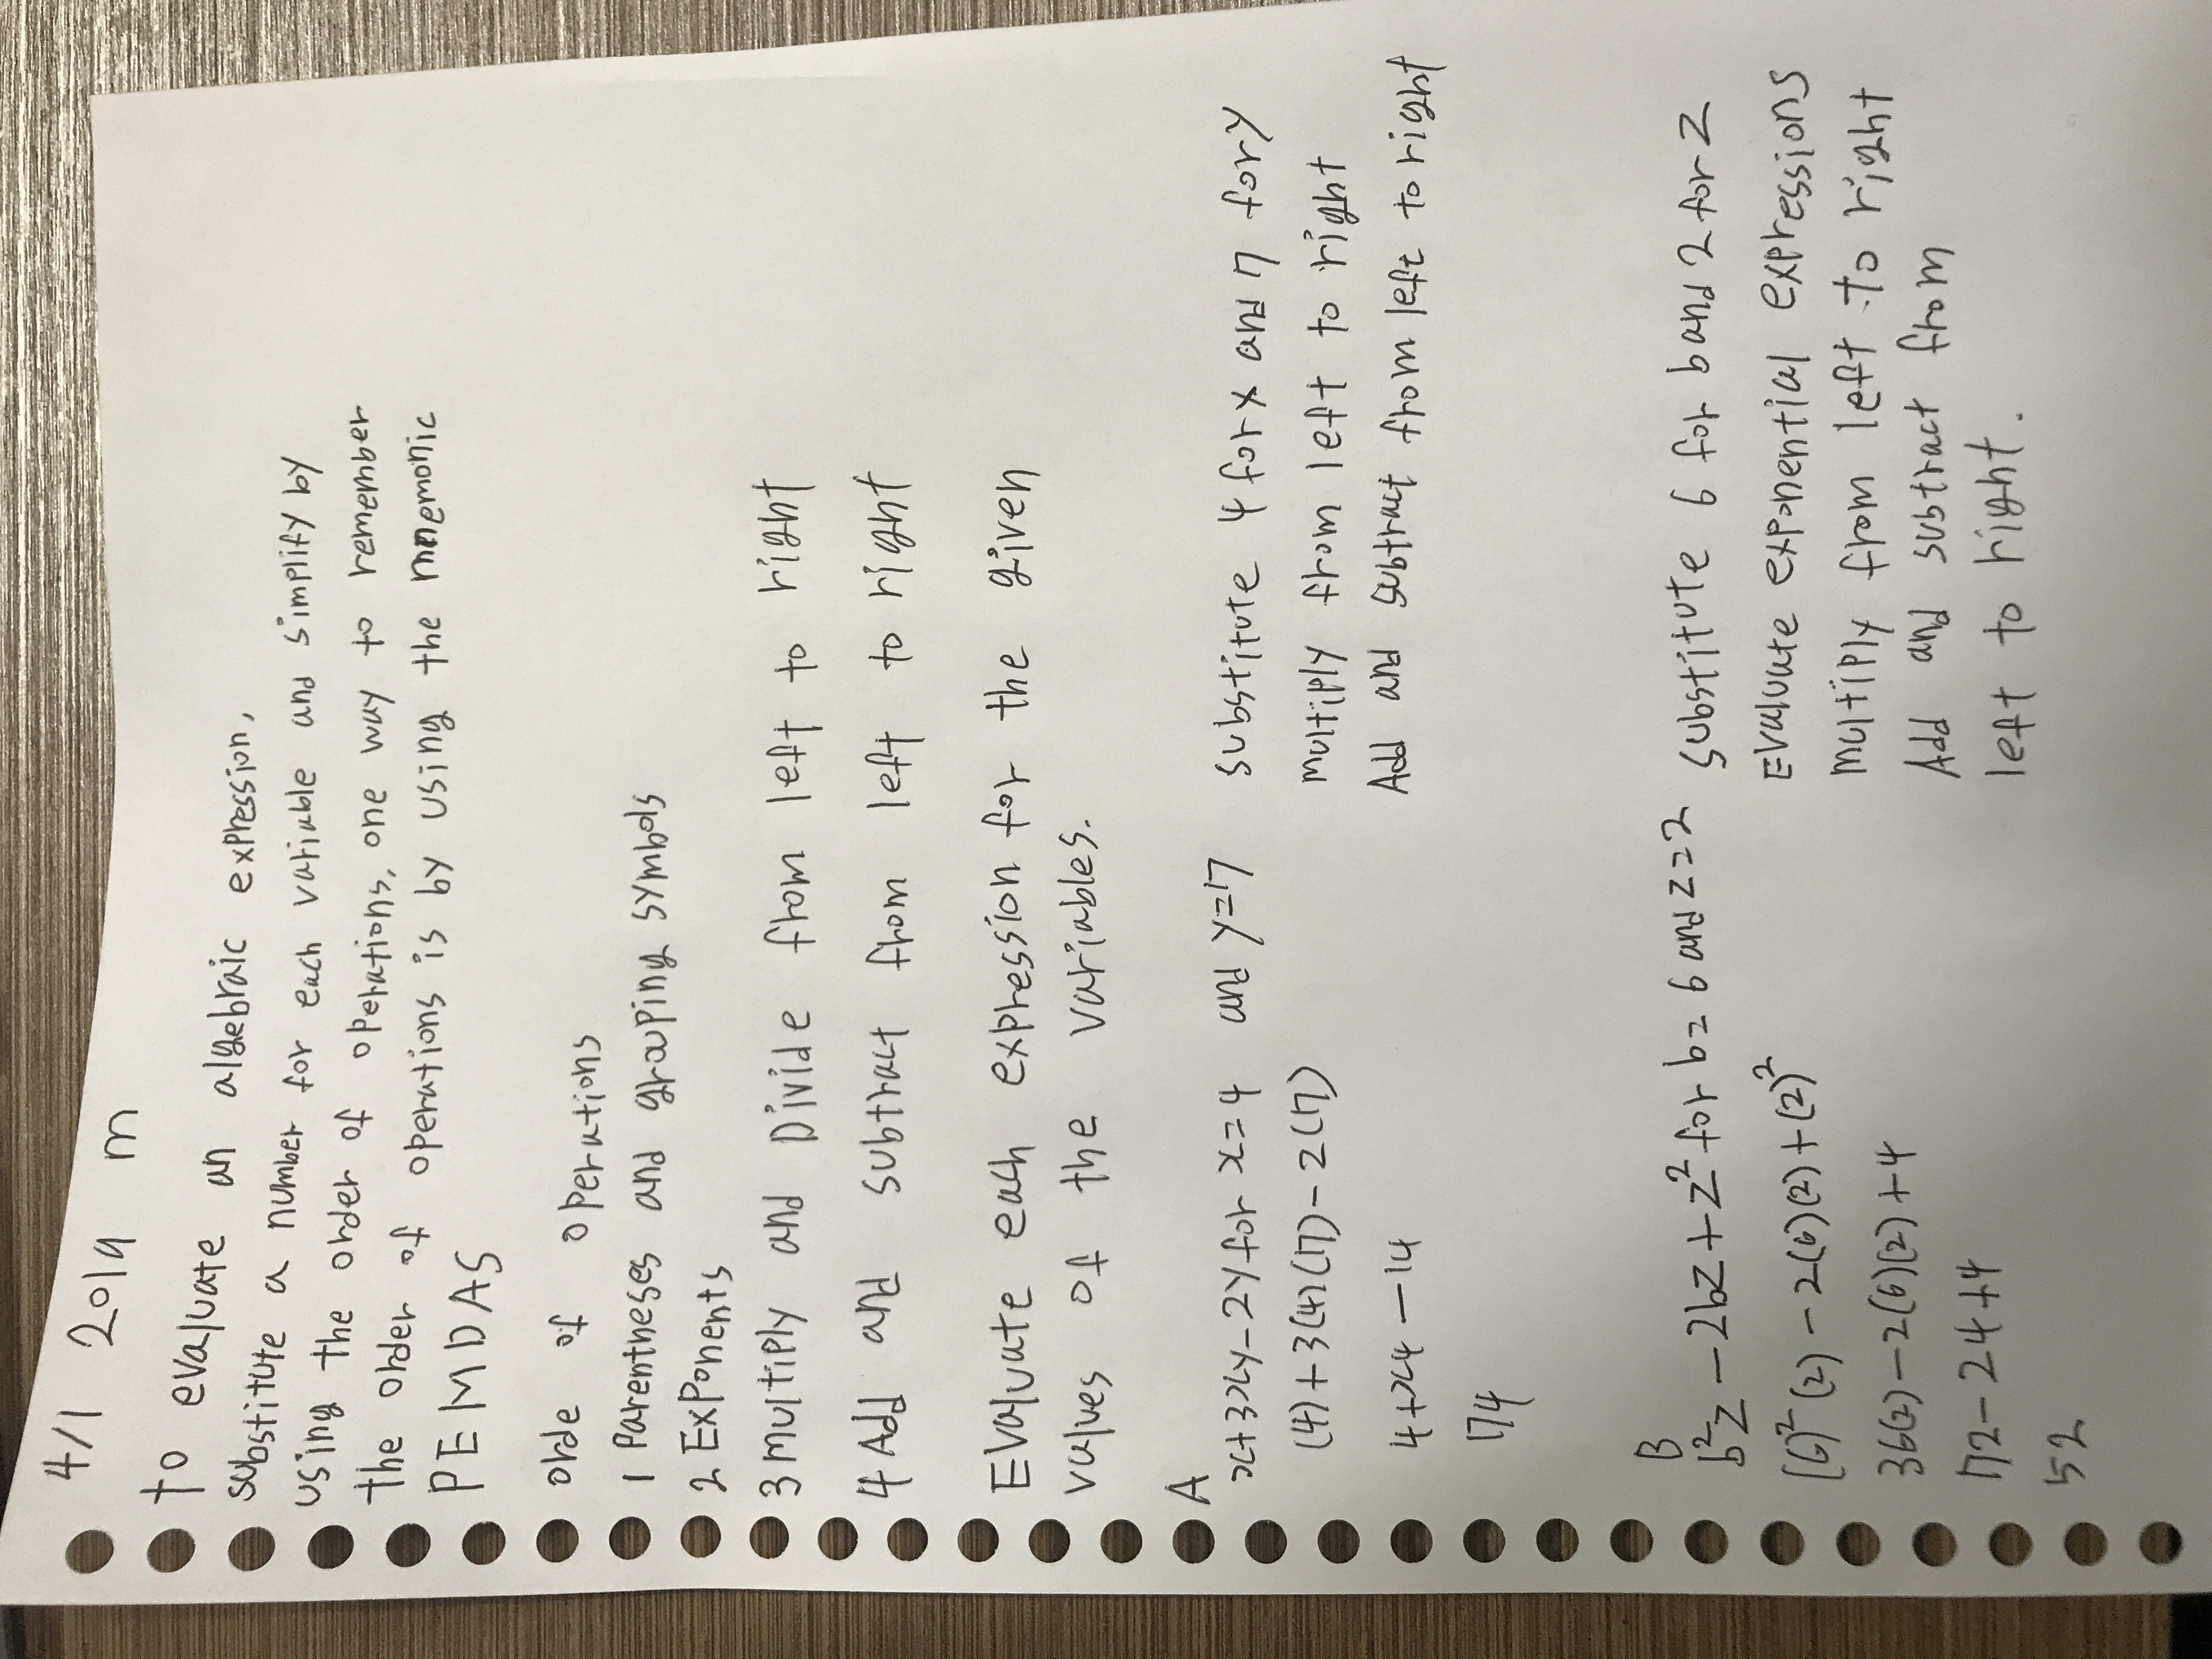 4/1 2019 m
To evaluate an algebraic expression,
substitute a number for each variable and simplify by
using the order of operations, one way to remember
the order of operations is by using the mnemonic
PEMDAS
orde of operations
1 Parentheses and grouping symbols
2 Exponents
3 multiply and Divide from left to right
4 Add and subtract from left to right
Evaluate each expression for the given
values of the variables.
A
x+3xy-2y for x=4 and y=7 substitute 4 for x and 7 for y
(4)+3(4)(7)-2(7) multiply from left to right
4+84-14 Add and subtract from left to right
74
B
b²z-2bz+z² for b=6 and z=2 substitute 6 for b and 2 for z
(6)²(2)-2(6)(2)+(2)² Evaluate exponential expressions
36(2)-2(6)(2)+4 multiply from left to right
72-24+4 Add and subtract from
52 left to right.